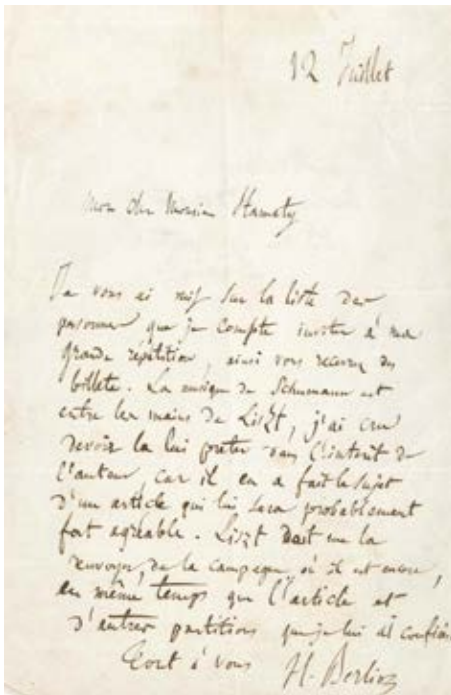 12 Juillet
Mon cher Monsieur Stamaty
Je vous ai mis sur la liste des
personnes que je compte inviter à ma
grande répétition, ainsi vous recevrez des
billets. La musique de Schumann est
entre les mains de Liszt, j'ai cru
devoir la lui prêter dans l'intérêt de
l'auteur, car il en a fait le sujet
d'un article qui lui sera probablement
fort agréable. Liszt doit me la
renvoyer de la campagne où il est encore,
en même temps que l'article et
d'autres partitions que je lui ai confiées
Tout à vous H. Berlioz